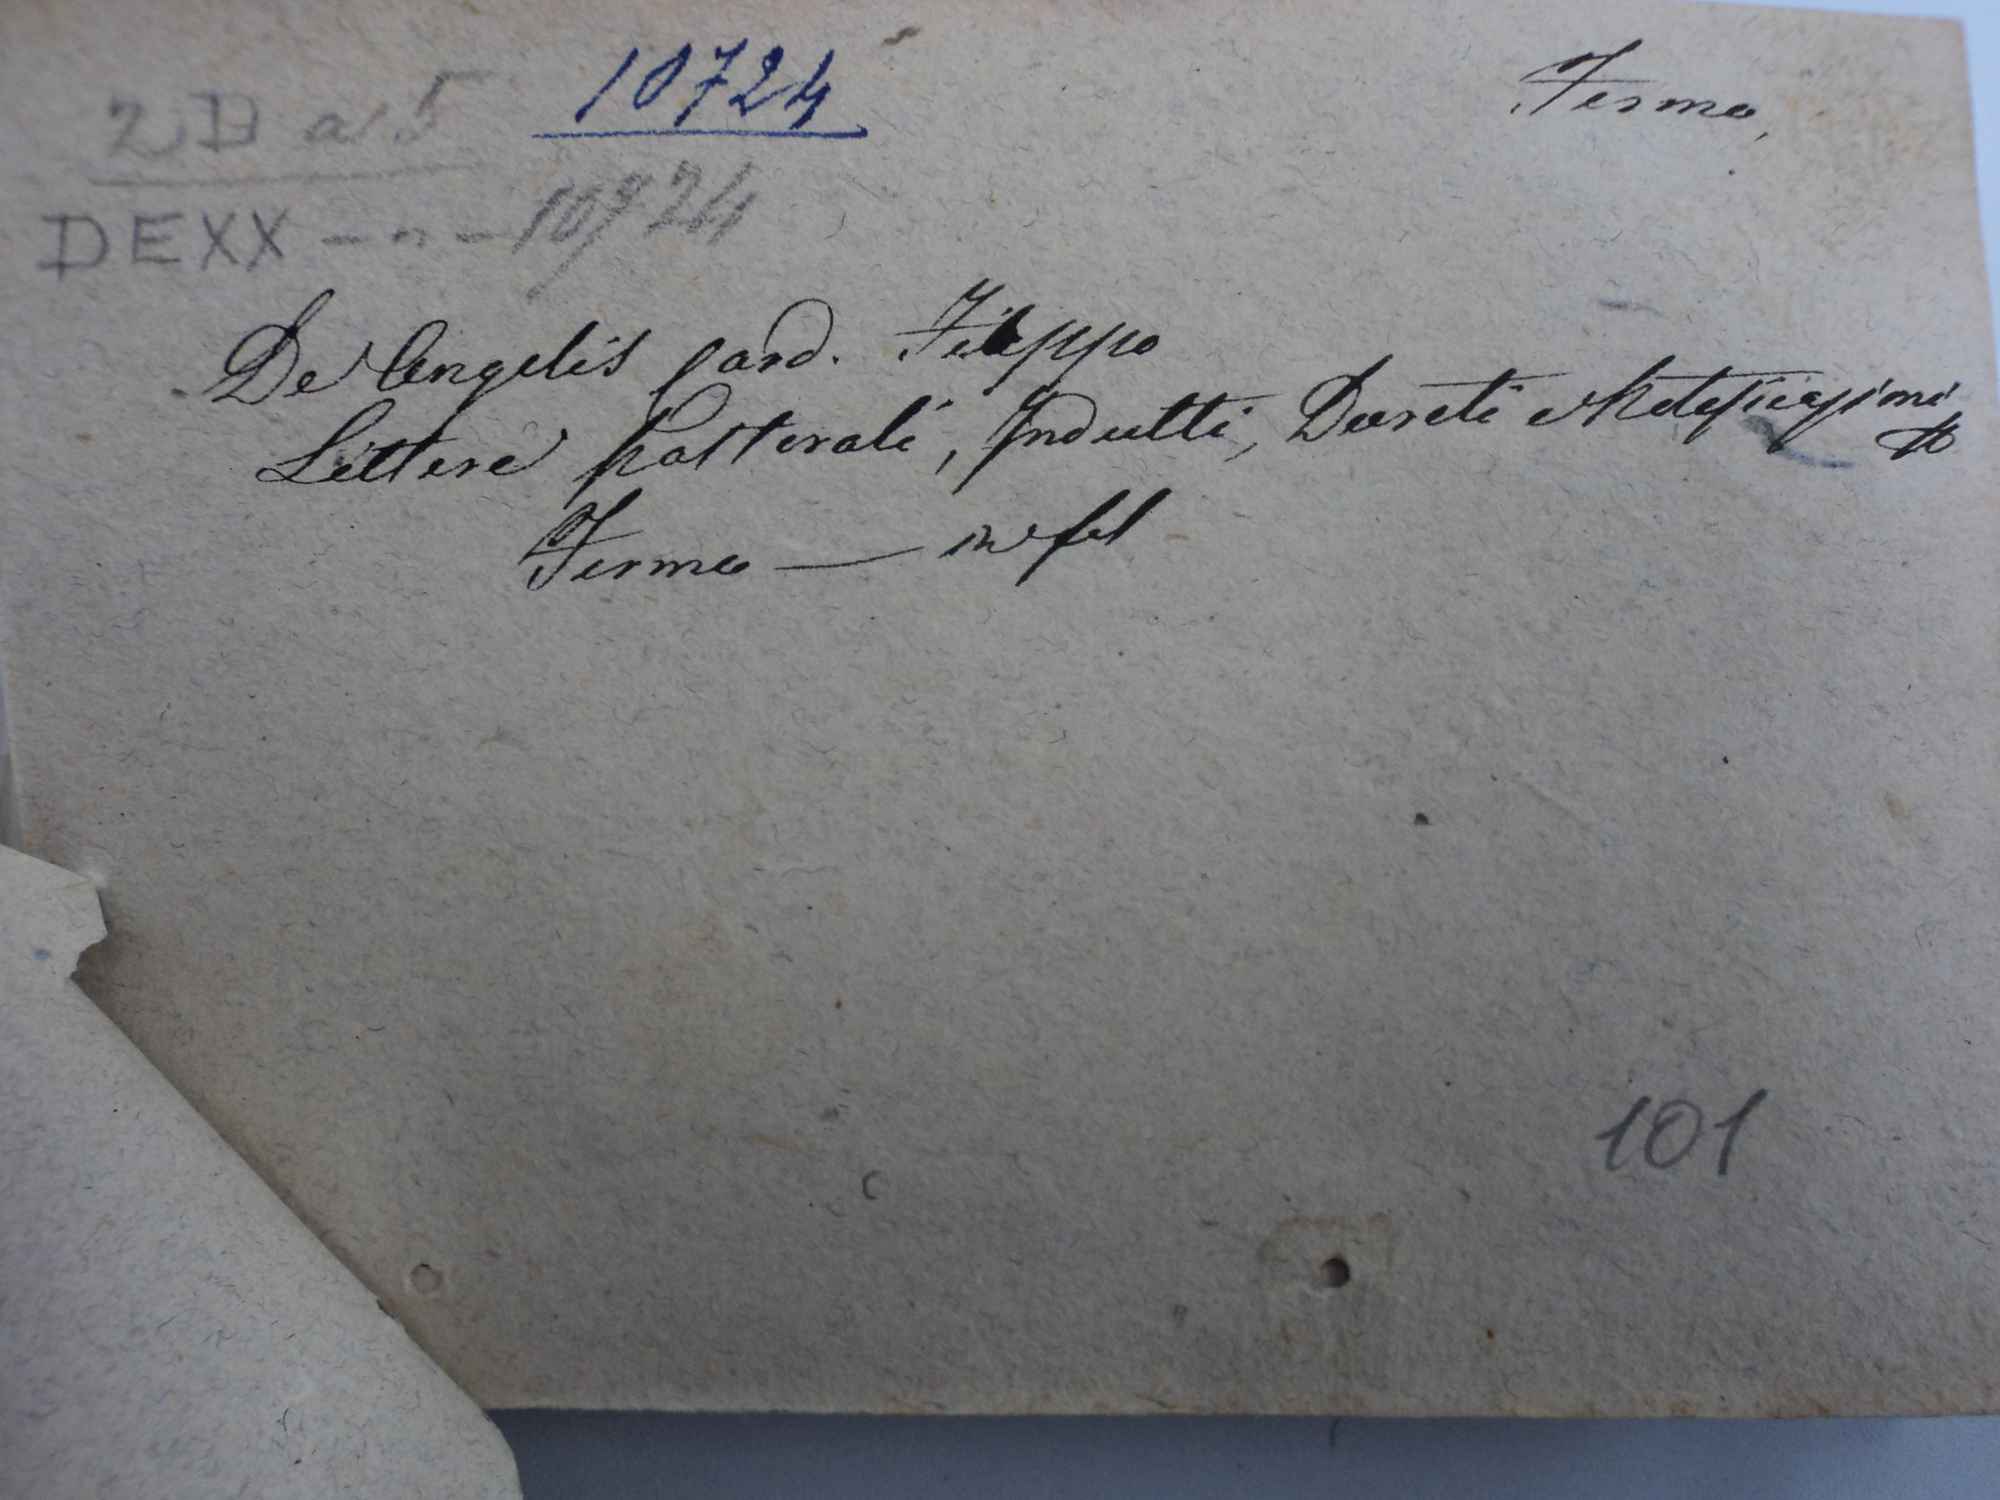 2 D a 5
10724
Fermo,
DEXX - n - 10724
De Angelis Card. Filippo
Lettere Pastorali, Indulti, Decreti e Notificazioni
Fermo — in fol
101